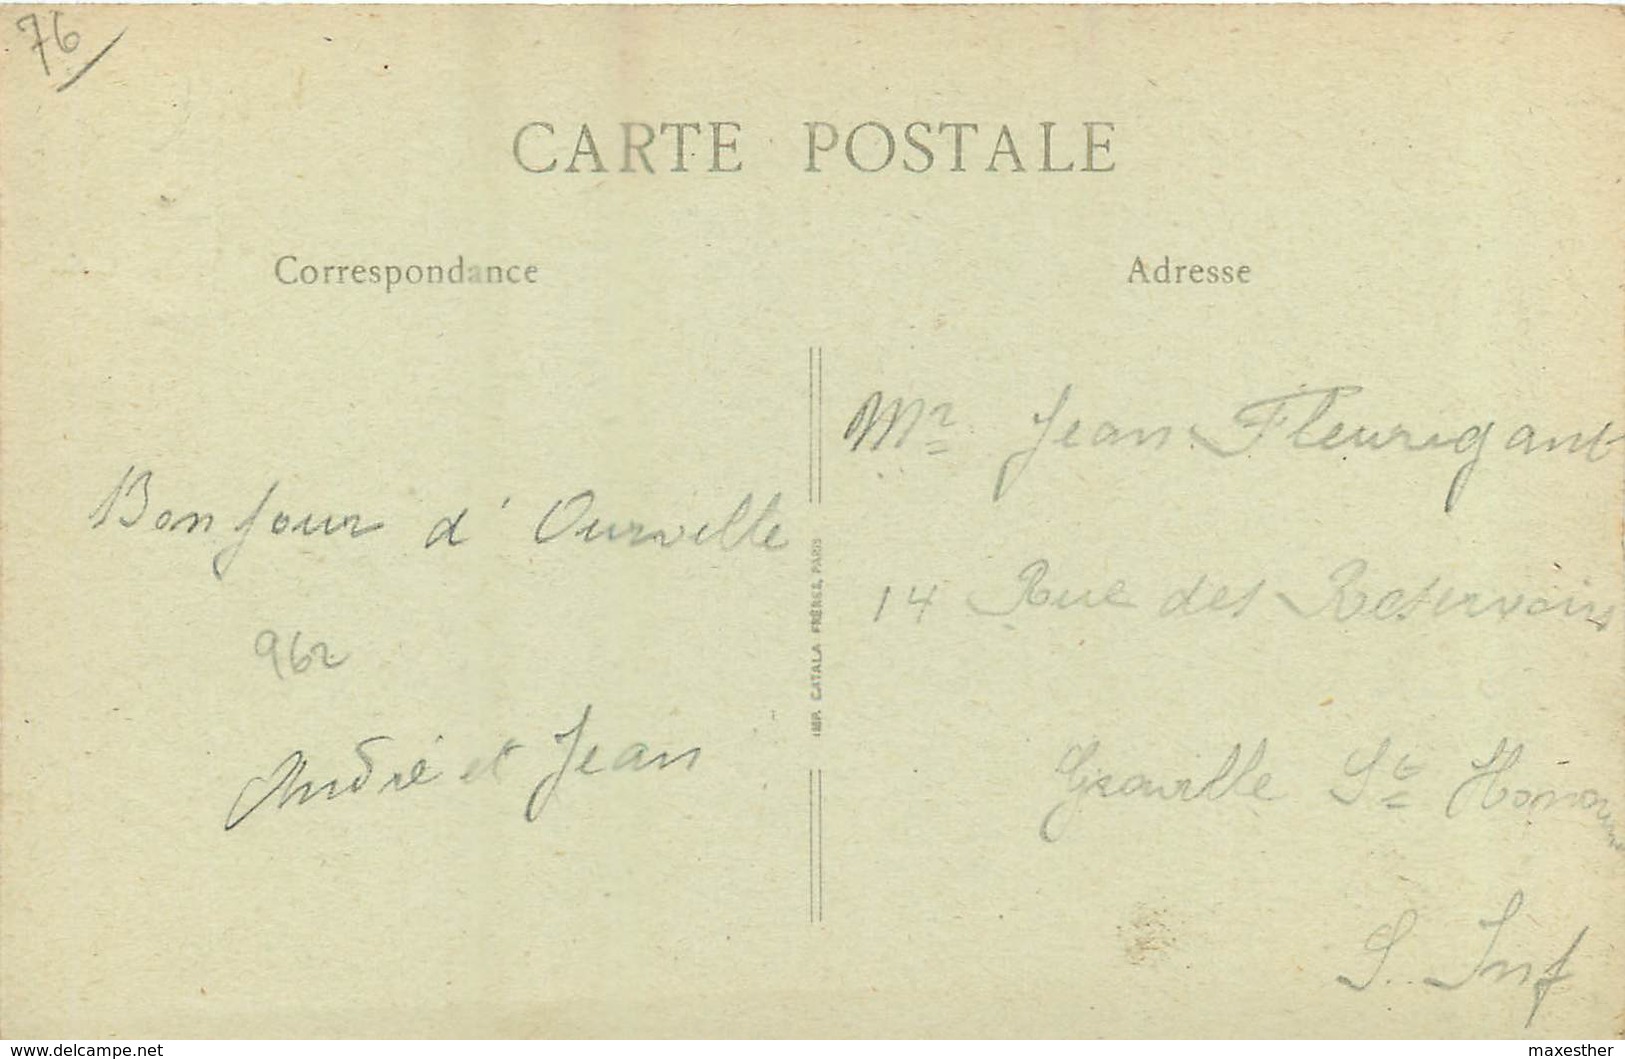 76
CARTE POSTALE
Correspondance
Adresse
Bonjour d'Ourville
962
André et Jean
IMP. CATALA FRÈRES, PARIS
Mr Jean Fleurigant
14 Rue des Reservoirs
Graville Ste Honorine
S. Inf
www.delcampe.net
maxesther